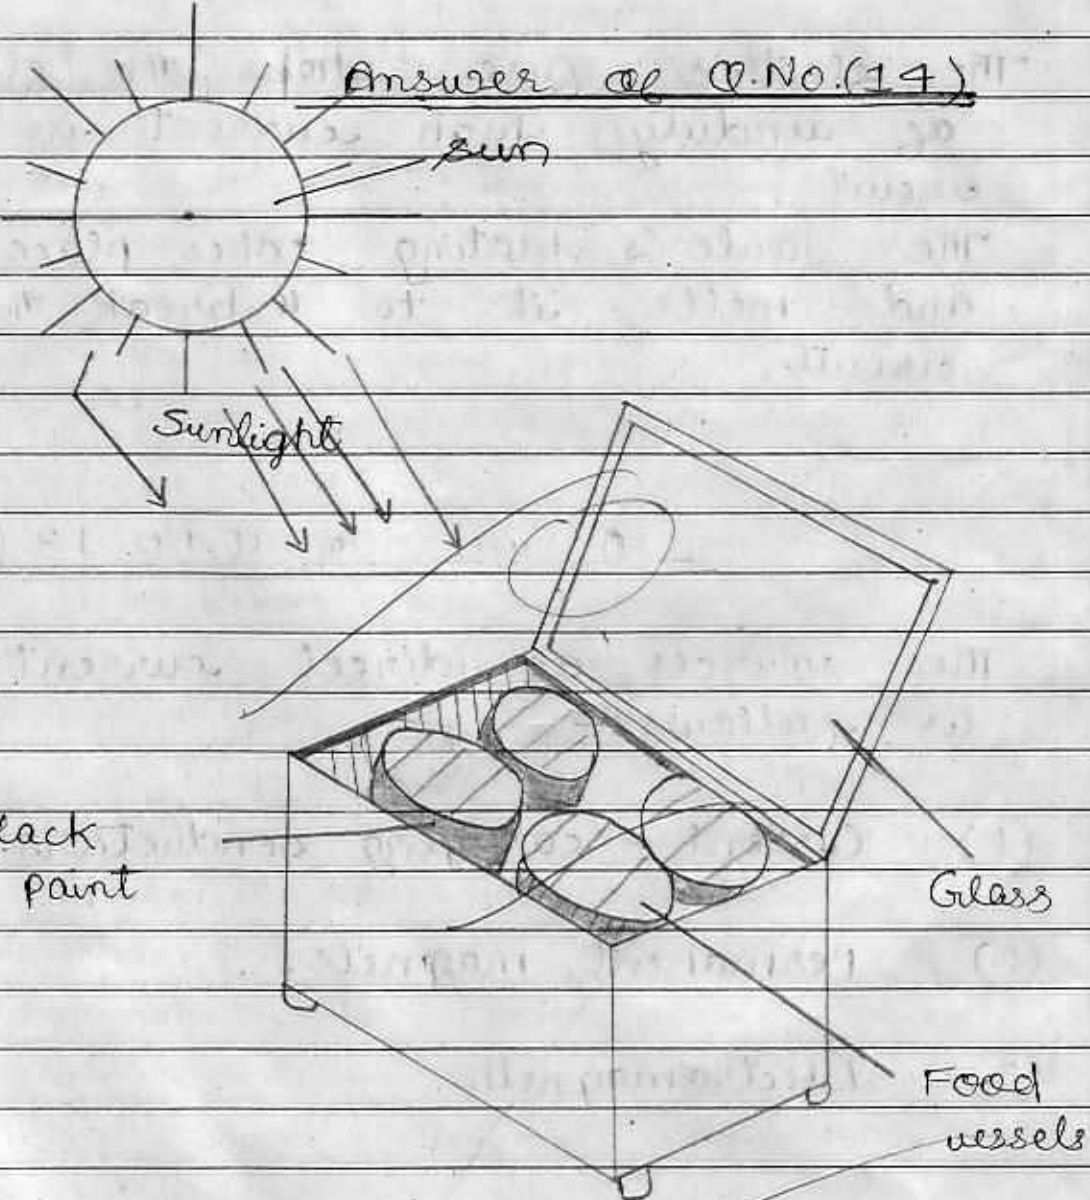 Answer of Q.No.(14)
sun
Sunlight
lack
paint
Glass
Food
vessels